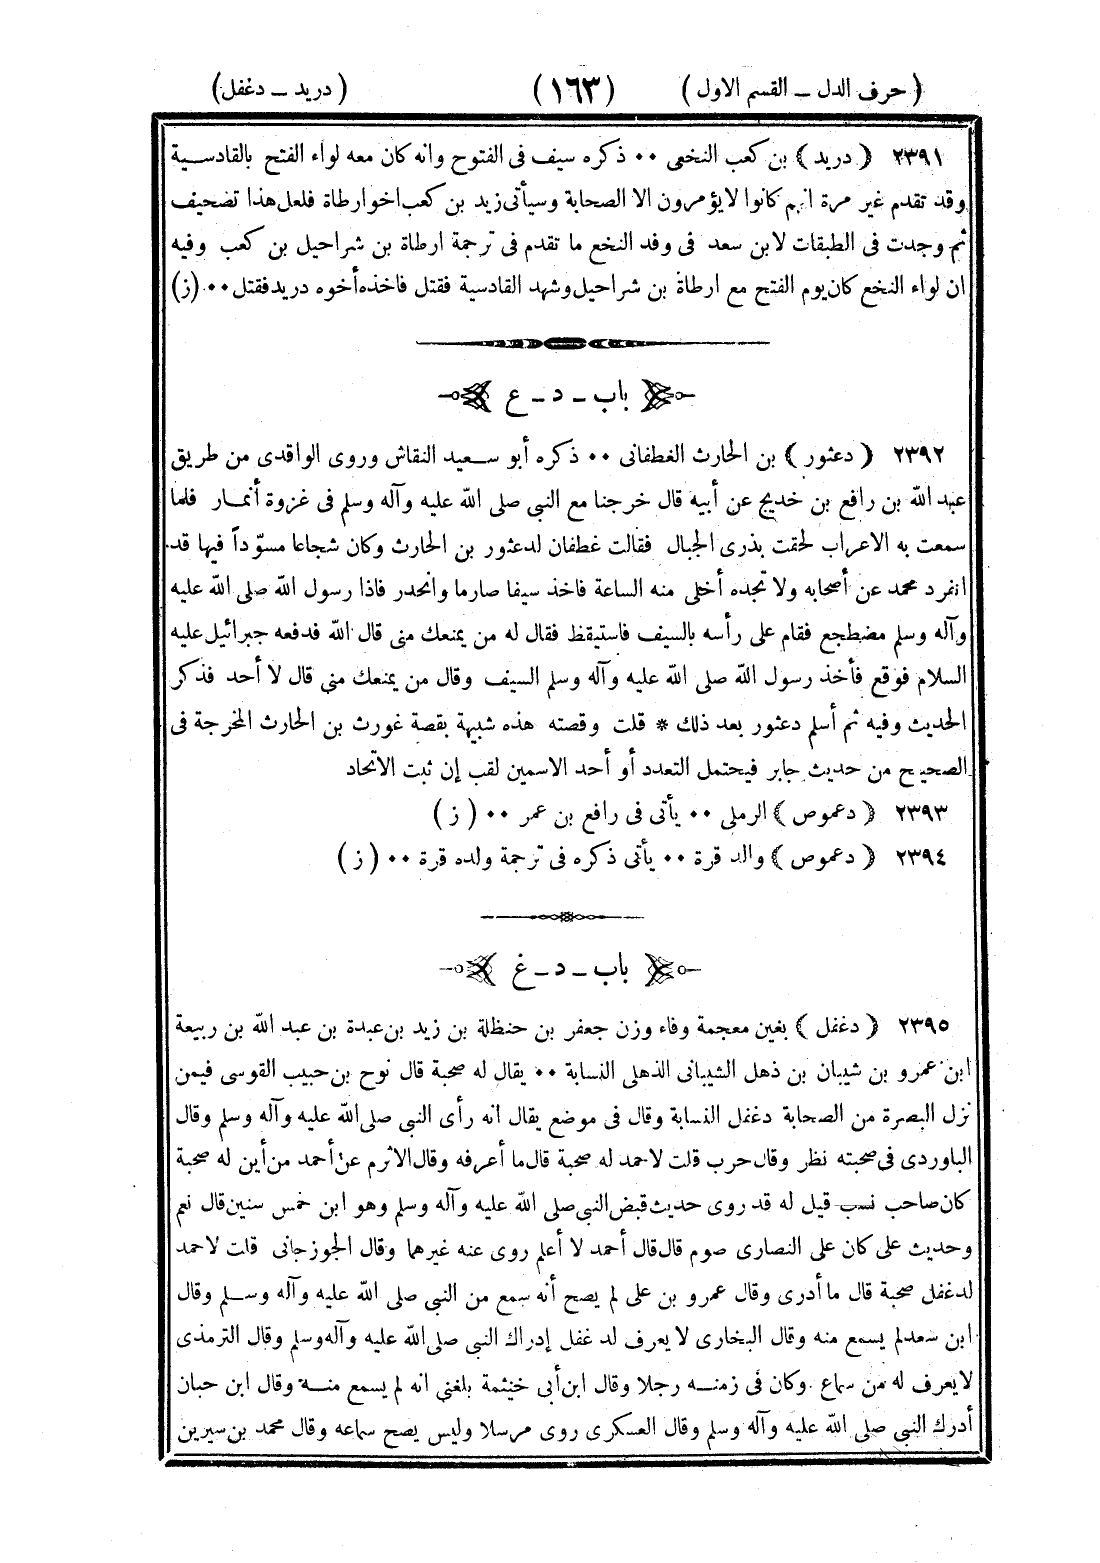 ( حرف الدل ـ القسم الاول ) ( ١٦٣ ) ( دريد ـ دغفل )
٢٣٩١ ( دريد ) بن كعب النخعى ٠٠ ذكره سيف فى الفتوح وانه كان معه لواء الفتح بالقادسية
وقد تقدم غير مرة انهم كانوا لايؤمرون الا الصحابة وسيأتى زيد بن كعب اخو ارطاة فلعل هذا تصحيف
ثم وجدت فى الطبقات لابن سعد فى وفد النخع ما تقدم فى ترجمة ارطاة بن شراحيل بن كعب وفيه
ان لواء النخع كان يوم الفتح مع ارطاة بن شراحيل وشهد القادسية فقتل فاخذه أخوه دريد فقتل ٠٠ (ز)
باب ـ د ـ ع
٢٣٩٢ ( دعثور ) بن الحارث الغطفانى ٠٠ ذكره أبو سعيد النقاش وروى الواقدى من طريق
عبد الله بن رافع بن خديج عن أبيه قال خرجنا مع النبي صلى الله عليه وآله وسلم فى غزوة أنمار فلما
سمعت به الاعراب لحقت بذرى الجبال فقالت غطفان لدعثور بن الحارث وكان شجاعا مسوّداً فيها قد
انفرد محمد عن أصحابه ولا تجده أخلى منه الساعة فاخذ سيفا صارما وانحدر فاذا رسول الله صلى الله عليه
وآله وسلم مضطجع فقام على رأسه بالسيف فاستيقظ فقال له من يمنعك منى قال الله فدفعه جبرائيل عليه
السلام فوقع فأخذ رسول الله صلى الله عليه وآله وسلم السيف وقال من يمنعك منى قال لا أحد فذكر
الحديث وفيه ثم أسلم دعثور بعد ذلك * قلت وقصته هذه شبيهة بقصة غورث بن الحارث المخرجة فى
الصحيح من حديث جابر فيحتمل التعدد أو أحد الاسمين لقب إن ثبت الاتحاد
٢٣٩٣ ( دعموص ) الرملى ٠٠ يأتى فى رافع بن عمر ٠٠ ( ز )
٢٣٩٤ ( دعموص ) والد قرة ٠٠ يأتى ذكره فى ترجمة ولده قرة ٠٠ ( ز )
باب ـ د ـ غ
٢٣٩٥ ( دغفل ) بغين معجمة وفاء وزن جعفر بن حنظلة بن زيد بن عبدة بن عبد الله بن ربيعة
ابن عمرو بن شيبان بن ذهل الشيبانى الذهلى النسابة ٠٠ يقال له صحبة قال نوح بن حبيب القوسى فيمن
نزل البصرة من الصحابة دغفل النسابة وقال فى موضع يقال انه رأى النبي صلى الله عليه وآله وسلم وقال
الباوردى فى صحبته نظر وقال حرب قلت لاحمد له صحبة قال ما أعرفه وقال الاثرم عن أحمد من أين له صحبة
كان صاحب نسب قيل له قد روى حديث قبض النبي صلى الله عليه وآله وسلم وهو ابن خمس سنين قال نعم
وحديث على كان على النصارى صوم قال قال أحمد لا أعلم روى عنه غيرهما وقال الجوزجانى قلت لاحمد
لدغفل صحبة قال ما أدرى وقال عمرو بن على لم يصح أنه سمع من النبي صلى الله عليه وآله وسلم وقال
ابن سعد لم يسمع منه وقال البخارى لا يعرف لدغفل إدراك النبي صلى الله عليه وآله وسلم وقال الترمذى
لا يعرف له من سماع وكان فى زمنه رجلا وقال ابن أبى خيثمة بلغنى انه لم يسمع منه وقال ابن حبان
أدرك النبي صلى الله عليه وآله وسلم وقال العسكرى روى مرسلا وليس يصح سماعه وقال محمد بن سيرين